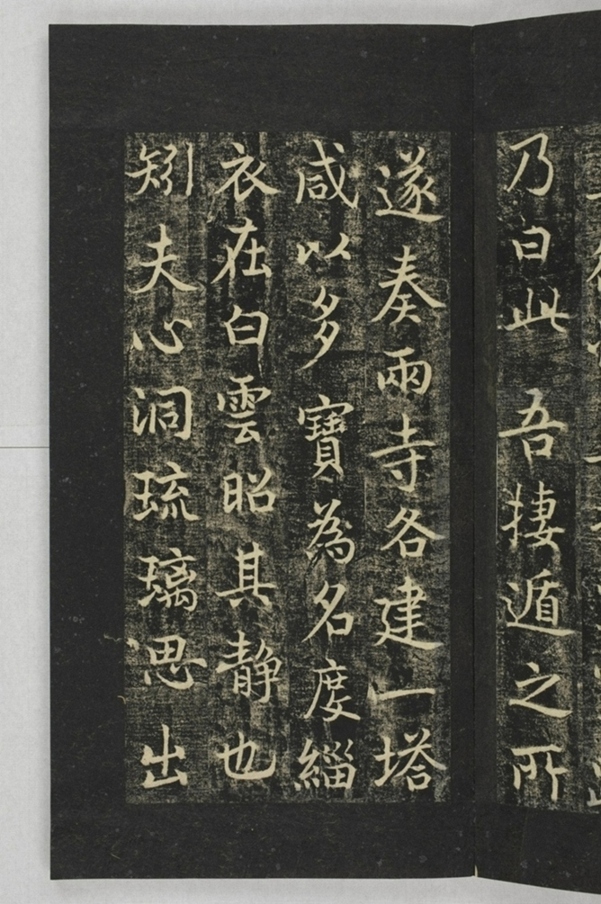 乃白此吾捿遁之所
遂奏兩寺各建一塔
咸以多寶為名度緇
衣在白雲昭其静也
矧夫心洞琉璃思出